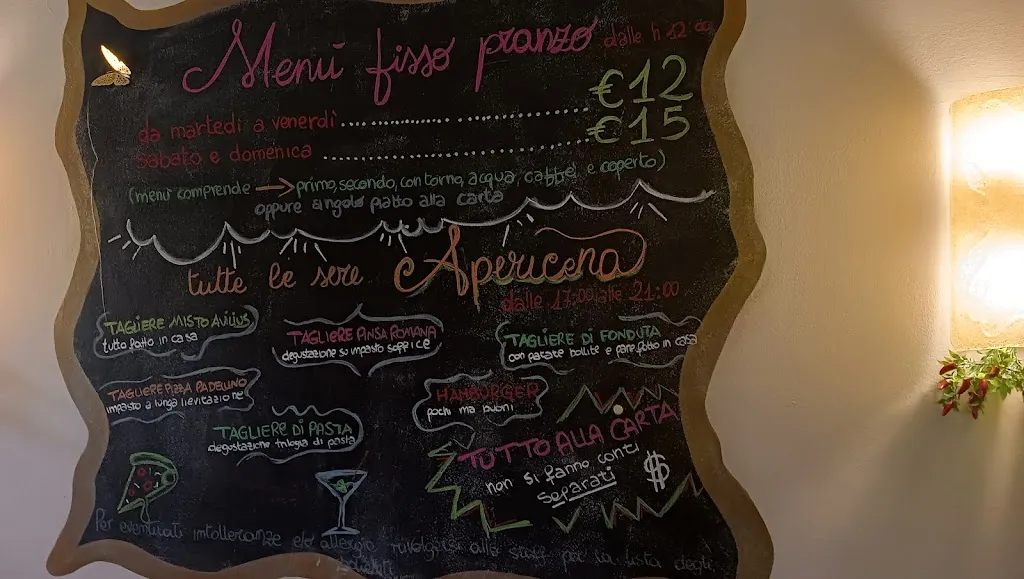 Menù fisso pranzo dalle h 12:00
da martedì a venerdì................ €12
sabato e domenica ................ €15
(menù comprende → primo, secondo, contorno, acqua, caffè e coperto)
oppure angolo piatto alla carta
tutte le sere Apericena
dalle 17:00 alle 21:00
TAGLIERE MISTO AVILIUS
tutto fatto in casa
TAGLIERE PINSA ROMANA
degustazione su impasto soffice
TAGLIERE DI FONDUTA
con patate bollite e pane fatto in casa
TAGLIERE PIZZA PADELLINO
impasto a lunga lievitazione
HAMBURGER
pochi ma buoni
TAGLIERE DI PASTA
degustazione trilogia di pasta
TUTTO ALLA CARTA
non si fanno conti
separati $
Per eventuali intolleranze e/o allergie rivolgersi allo staff per la lista degli